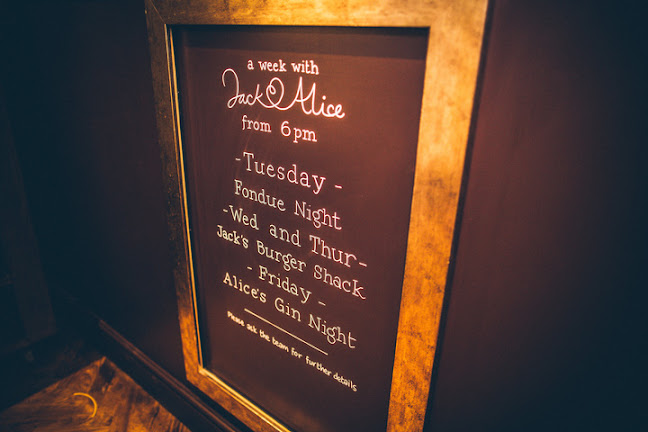 a week with
Jack & Alice
from 6pm
-Tuesday-
Fondue Night
-Wed and Thur-
Jack's Burger Shack
-Friday-
Alice's Gin Night
Please ask the team for further details